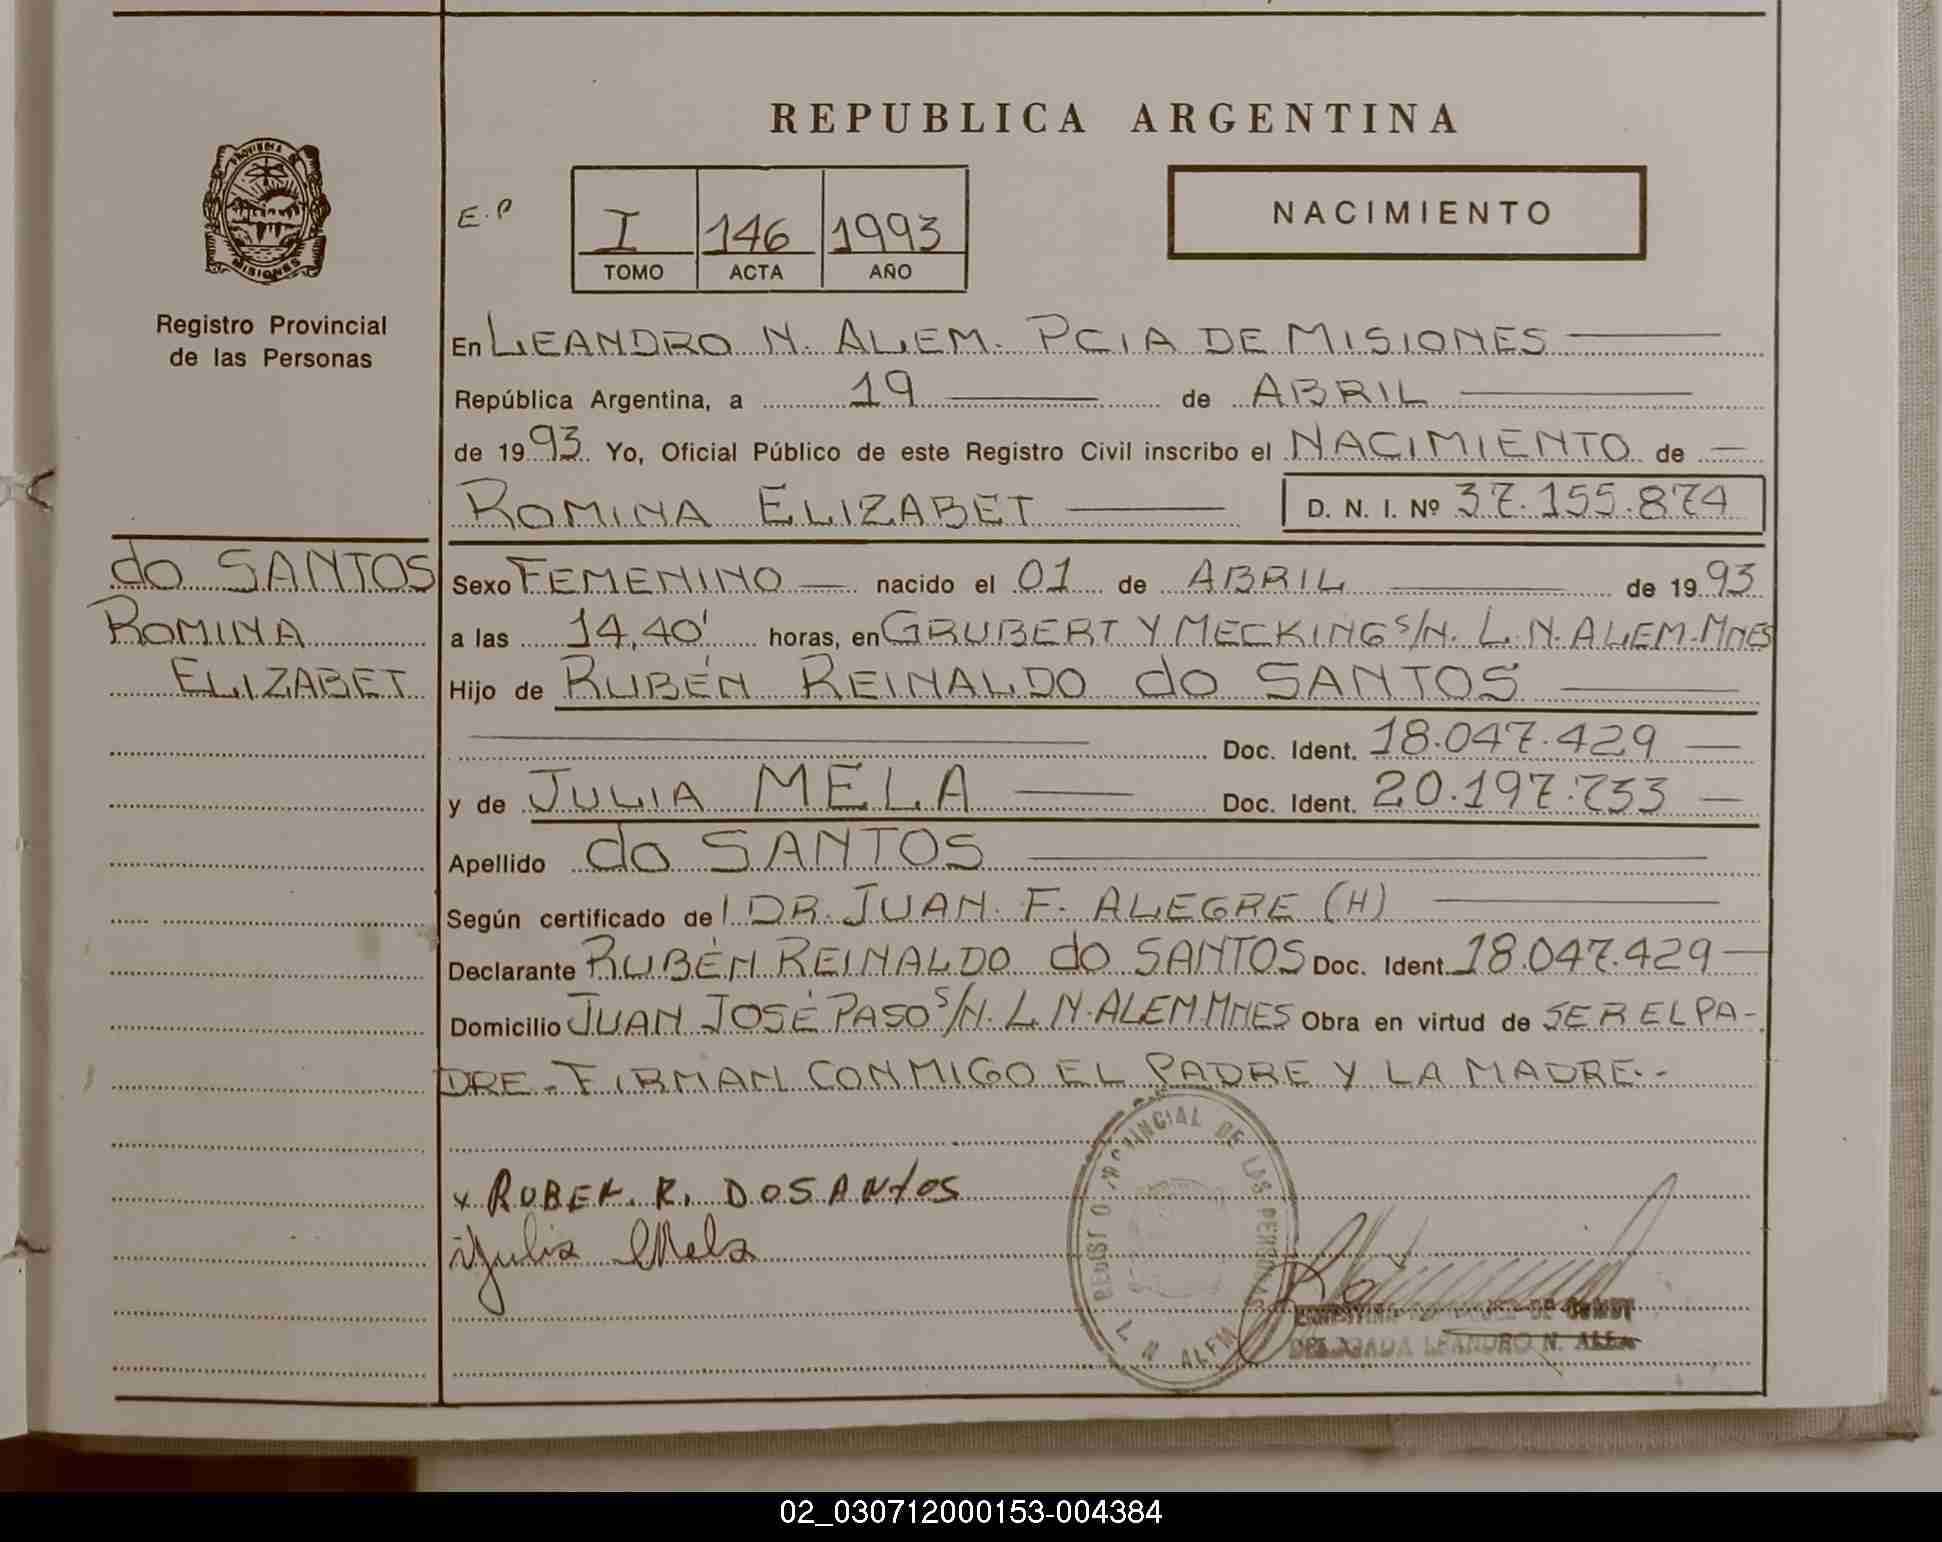 REPUBLICA ARGENTINA
PROVINCIA DE
MISIONES
Registro Provincial
de las Personas
E.P
I 146 1993
TOMO ACTA AÑO
NACIMIENTO
En LEANDRO N. ALEM. PCIA DE MISIONES
República Argentina, a 19 de ABRIL
de 1993. Yo, Oficial Público de este Registro Civil inscribo el NACIMIENTO de
ROMINA ELIZABET D. N. I. Nº 37.155.874
do SANTOS
ROMINA
ELIZABET
Sexo FEMENINO nacido el 01 de ABRIL de 1993
a las 14,40' horas, en GRUBERT Y MECKING S/N. L.N. ALEM-MNES
Hijo de RUBÉN REINALDO do SANTOS
Doc. Ident. 18.047.429
y de JULIA MELA Doc. Ident. 20.197.733
Apellido do SANTOS
Según certificado del DR. JUAN. F. ALEGRE (H)
Declarante RUBÉN REINALDO do SANTOS Doc. Ident. 18.047.429
Domicilio JUAN JOSÉ PASO S/N. L.N. ALEM MNES Obra en virtud de SER EL PA-
DRE. FIRMAN CONMIGO EL PADRE Y LA MADRE.-
x RUBEN. R. DOSANtOS
Julia Mela
REGISTRO PROVINCIAL DE LAS PERSONAS
L. N. ALEM
DELEGADA LEANDRO N. ALEM
02_030712000153-004384